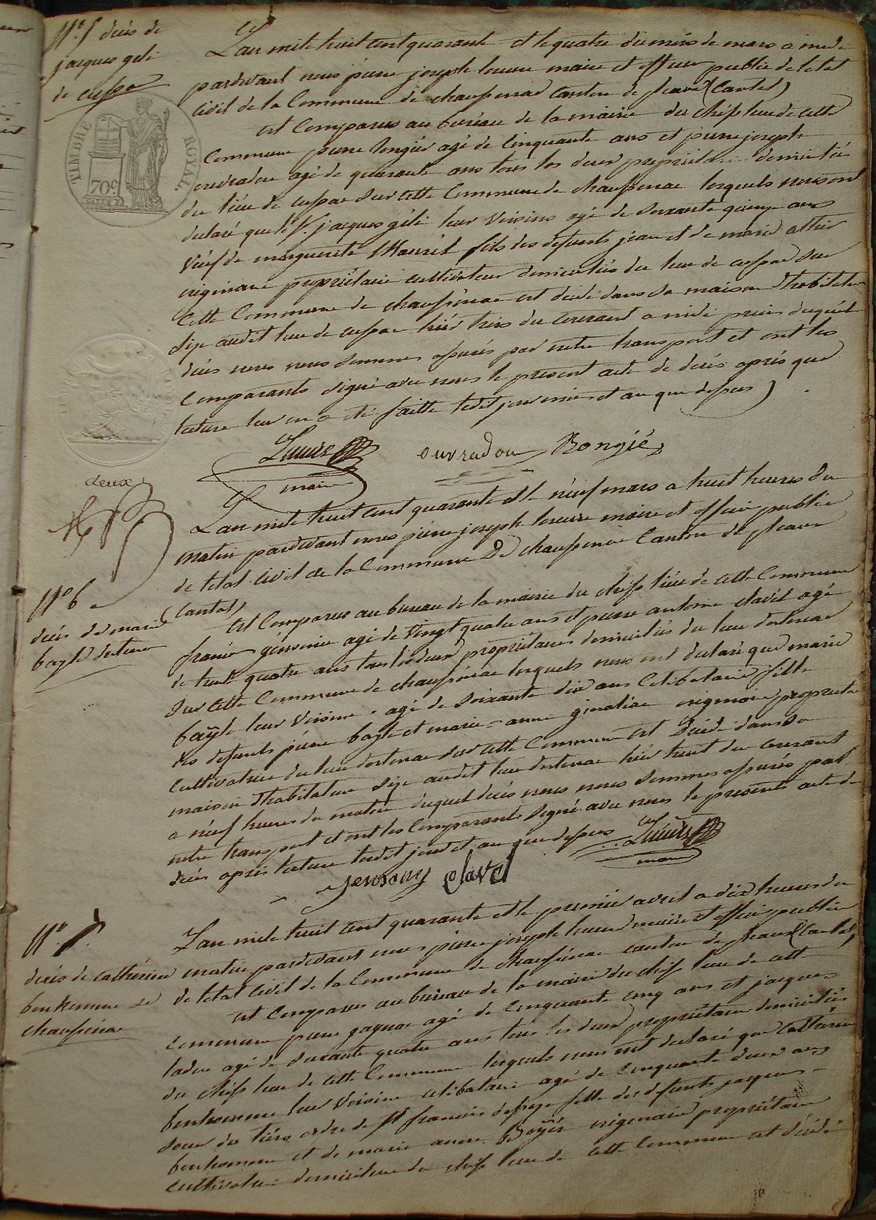 N° 5 décès de
jacques geli
de cussac
TIMBRE ROYAL
70c
L'an mile huit cent quarante et le quatre du mois de mars a midi
pardevant nous pierre joseph maire et officier public de l'etat
civil de la Commune de chaussenac canton de pleaux (Cantal)
est Comparus au bureau de la mairie du chef lieu de cette
Commune pierre Rongié agé de Cinquante ans et pierre joseph
ouvradou agé de quarante ans tous les deux propriétaires domiciliés
du lieu de cussac sur cette Commune de chaussenac lesquels nous ont
déclaré que le sr jacques géli leur voisin agé de soixante quinze ans
veuf de marguerite fils des defunts jean et de marie
originaire propriétaire cultivateur domiciliés du lieu de cussac sur
Cette Commune de chaussenac est décédé dans sa maison d'habitation
size audit lieu de cussac hier trois du courant a midi précis duquel
décès nous nous sommes assurés par notre transport et ont les
Comparants signé avec nous le present acte de décès après que
lecture leur en a été faitte ledit jour mois et an que dessus
maire
ouvradou Rongié
deux
L'an mile huit cent quarante et le neuf mars a huit heures du
matin pardevant nous pierre joseph maire et officier public
de l'etat Civil de la Commune De chaussenac Canton de pleaux
(Cantal)
N° 6
décès de marie
bayle
est Comparus au bureau de la mairie du chef lieu de cette Commune
francois agé de vingt quatre ans et pierre antoine clavel agé
de trente quatre ans tous les deux propriétaires domiciliés du lieu d'ostenac
sur cette Commune de chaussenac lesquels nous ont déclaré que marie
bayle leur voisine agé de soixante dix ans Celibataire fille
des defunts pierre bayle et marie-anne originaire propriétaire
cultivatrice du lieu d'ostenac sur cette Commune est Décédé dans sa
maison d'habitation size audit lieu d'ostenac hier huit du courant
a neuf heures du matin duquel décès nous nous sommes assurés par
notre transport et ont les Comparants signé avec nous le présente acte de
décès après lecture ledit jour et an que dessus
maire
clavel
N° 7
décès de cathérine
bonhomme de
chaussenac
L'an mile huit cent quarante et le premier avril a dix heures du
matin pardevant nous pierre joseph maire et officier public
de l'etat civil de la Commune de chaussenac canton de pleaux (Cantal)
est Comparus au bureau de la mairie du chef lieu de cette
commune pierre gagnac agé de Cinquante cinq ans et jacques
agé de soixante quatre ans tous les deux propriétaires domiciliés
du chef lieu de cette Commune lesquels nous ont déclaré que Cathérine
bonhomme leur voisine celibataire agé de Cinquante deux ans
soeur du tiers ordre de st francois fille des defunts jacques
bonhomme et de marie anne originaire propriétaire
cultivatrice domiciliée du chef lieu de cette Commune est décédé